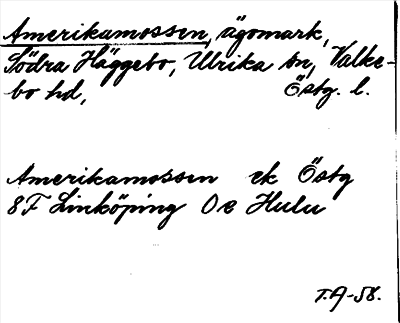 Amerikamossen, ägomark,
Södra Häggebo, Ulrika sn, Valke-
bo hd, Östg. l.
Amerikamossen ek Östg
8F Linköping 0 e Hulu
T.A-58.